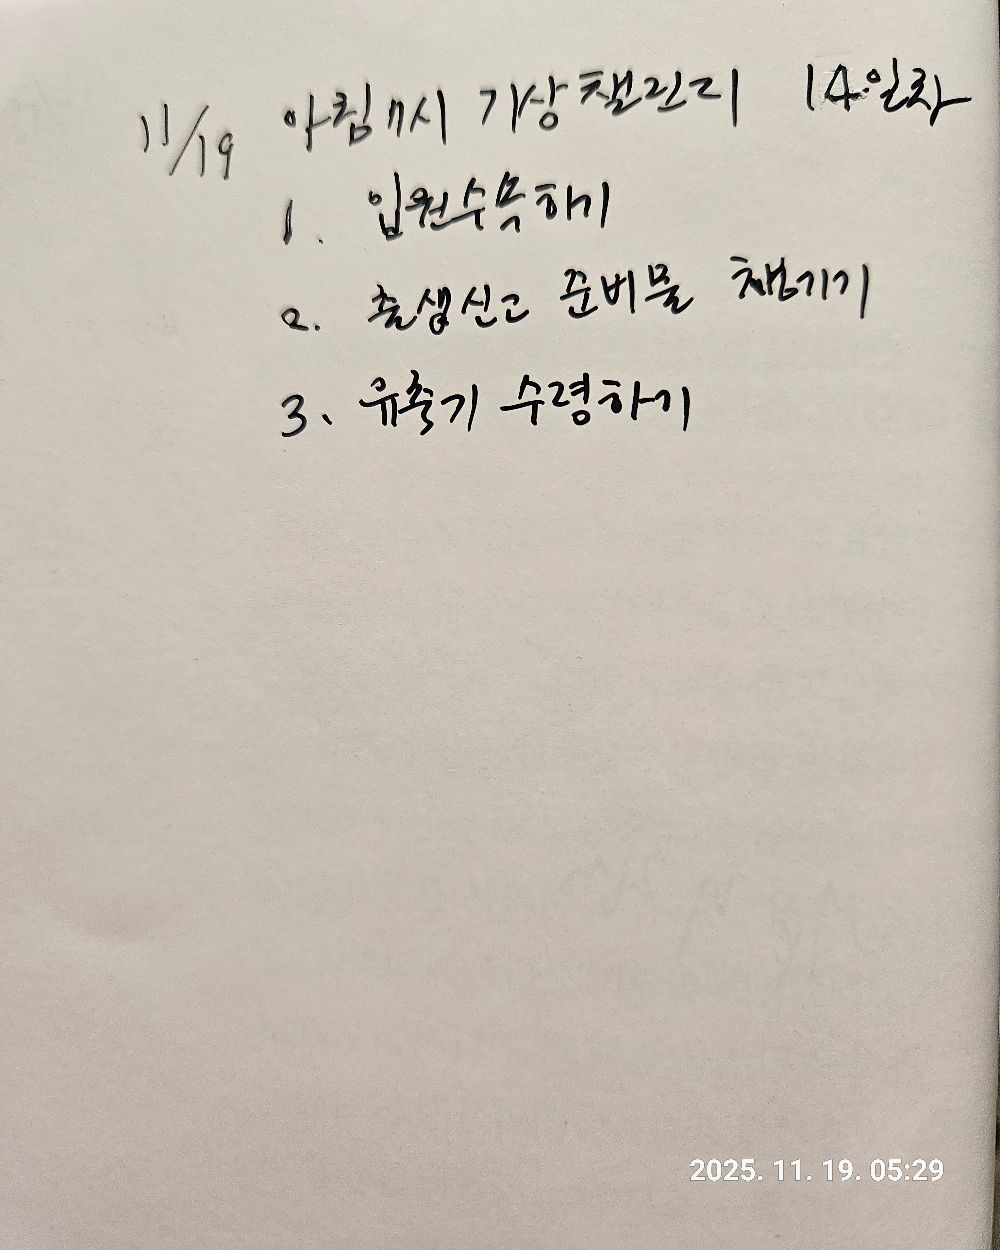 11/19 아침 7시 기상 챌린지 14일차
1. 입원수속하기
2. 출생신고 준비물 챙기기
3. 유축기 수령하기
2025. 11. 19. 05:29